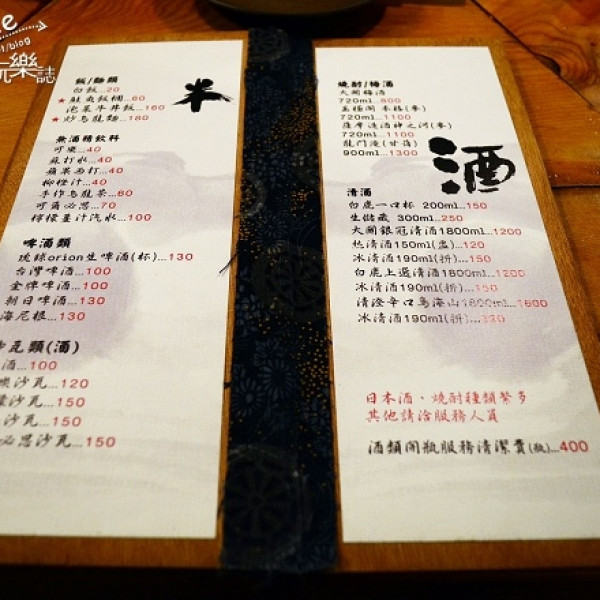 /blog
玩樂誌
米
飯/麵類
白飯...20
★鮭魚飯糰...60
泡菜牛丼飯...160
★炒烏龍麵...180
無酒精飲料
可樂...40
蘇打水...40
蘋果西打...40
柳橙汁...40
手作烏龍茶...60
可爾必思...70
檸檬薑汁汽水...100
啤酒類
琉球orion生啤酒(杯)...130
台灣啤酒...100
金牌啤酒...100
朝日啤酒...130
海尼根...130
沙瓦類(酒)
酒...100
沙瓦...120
沙瓦...150
沙瓦...150
必思沙瓦...150
酒
燒酎/梅酒
大關梅酒
720ml...800
720ml...1100
薩摩道酒神之河(麥)
720ml...1100
龍門滝(甘藷)
900ml...1300
清酒
白鹿一口杯 200ml...150
生儲藏 300ml...250
大關銀冠清酒1800ml...1200
熱清酒150ml(盅)...120
冰清酒190ml(拼)...150
白鹿上選清酒1800ml...1200
冰清酒190ml(拼)...150
清澄辛口鳥海山1800ml...1600
冰清酒190ml(拼)...320
日本酒、燒酎種類繁多
其他請洽服務人員
酒類開瓶服務清潔費(瓶)...400